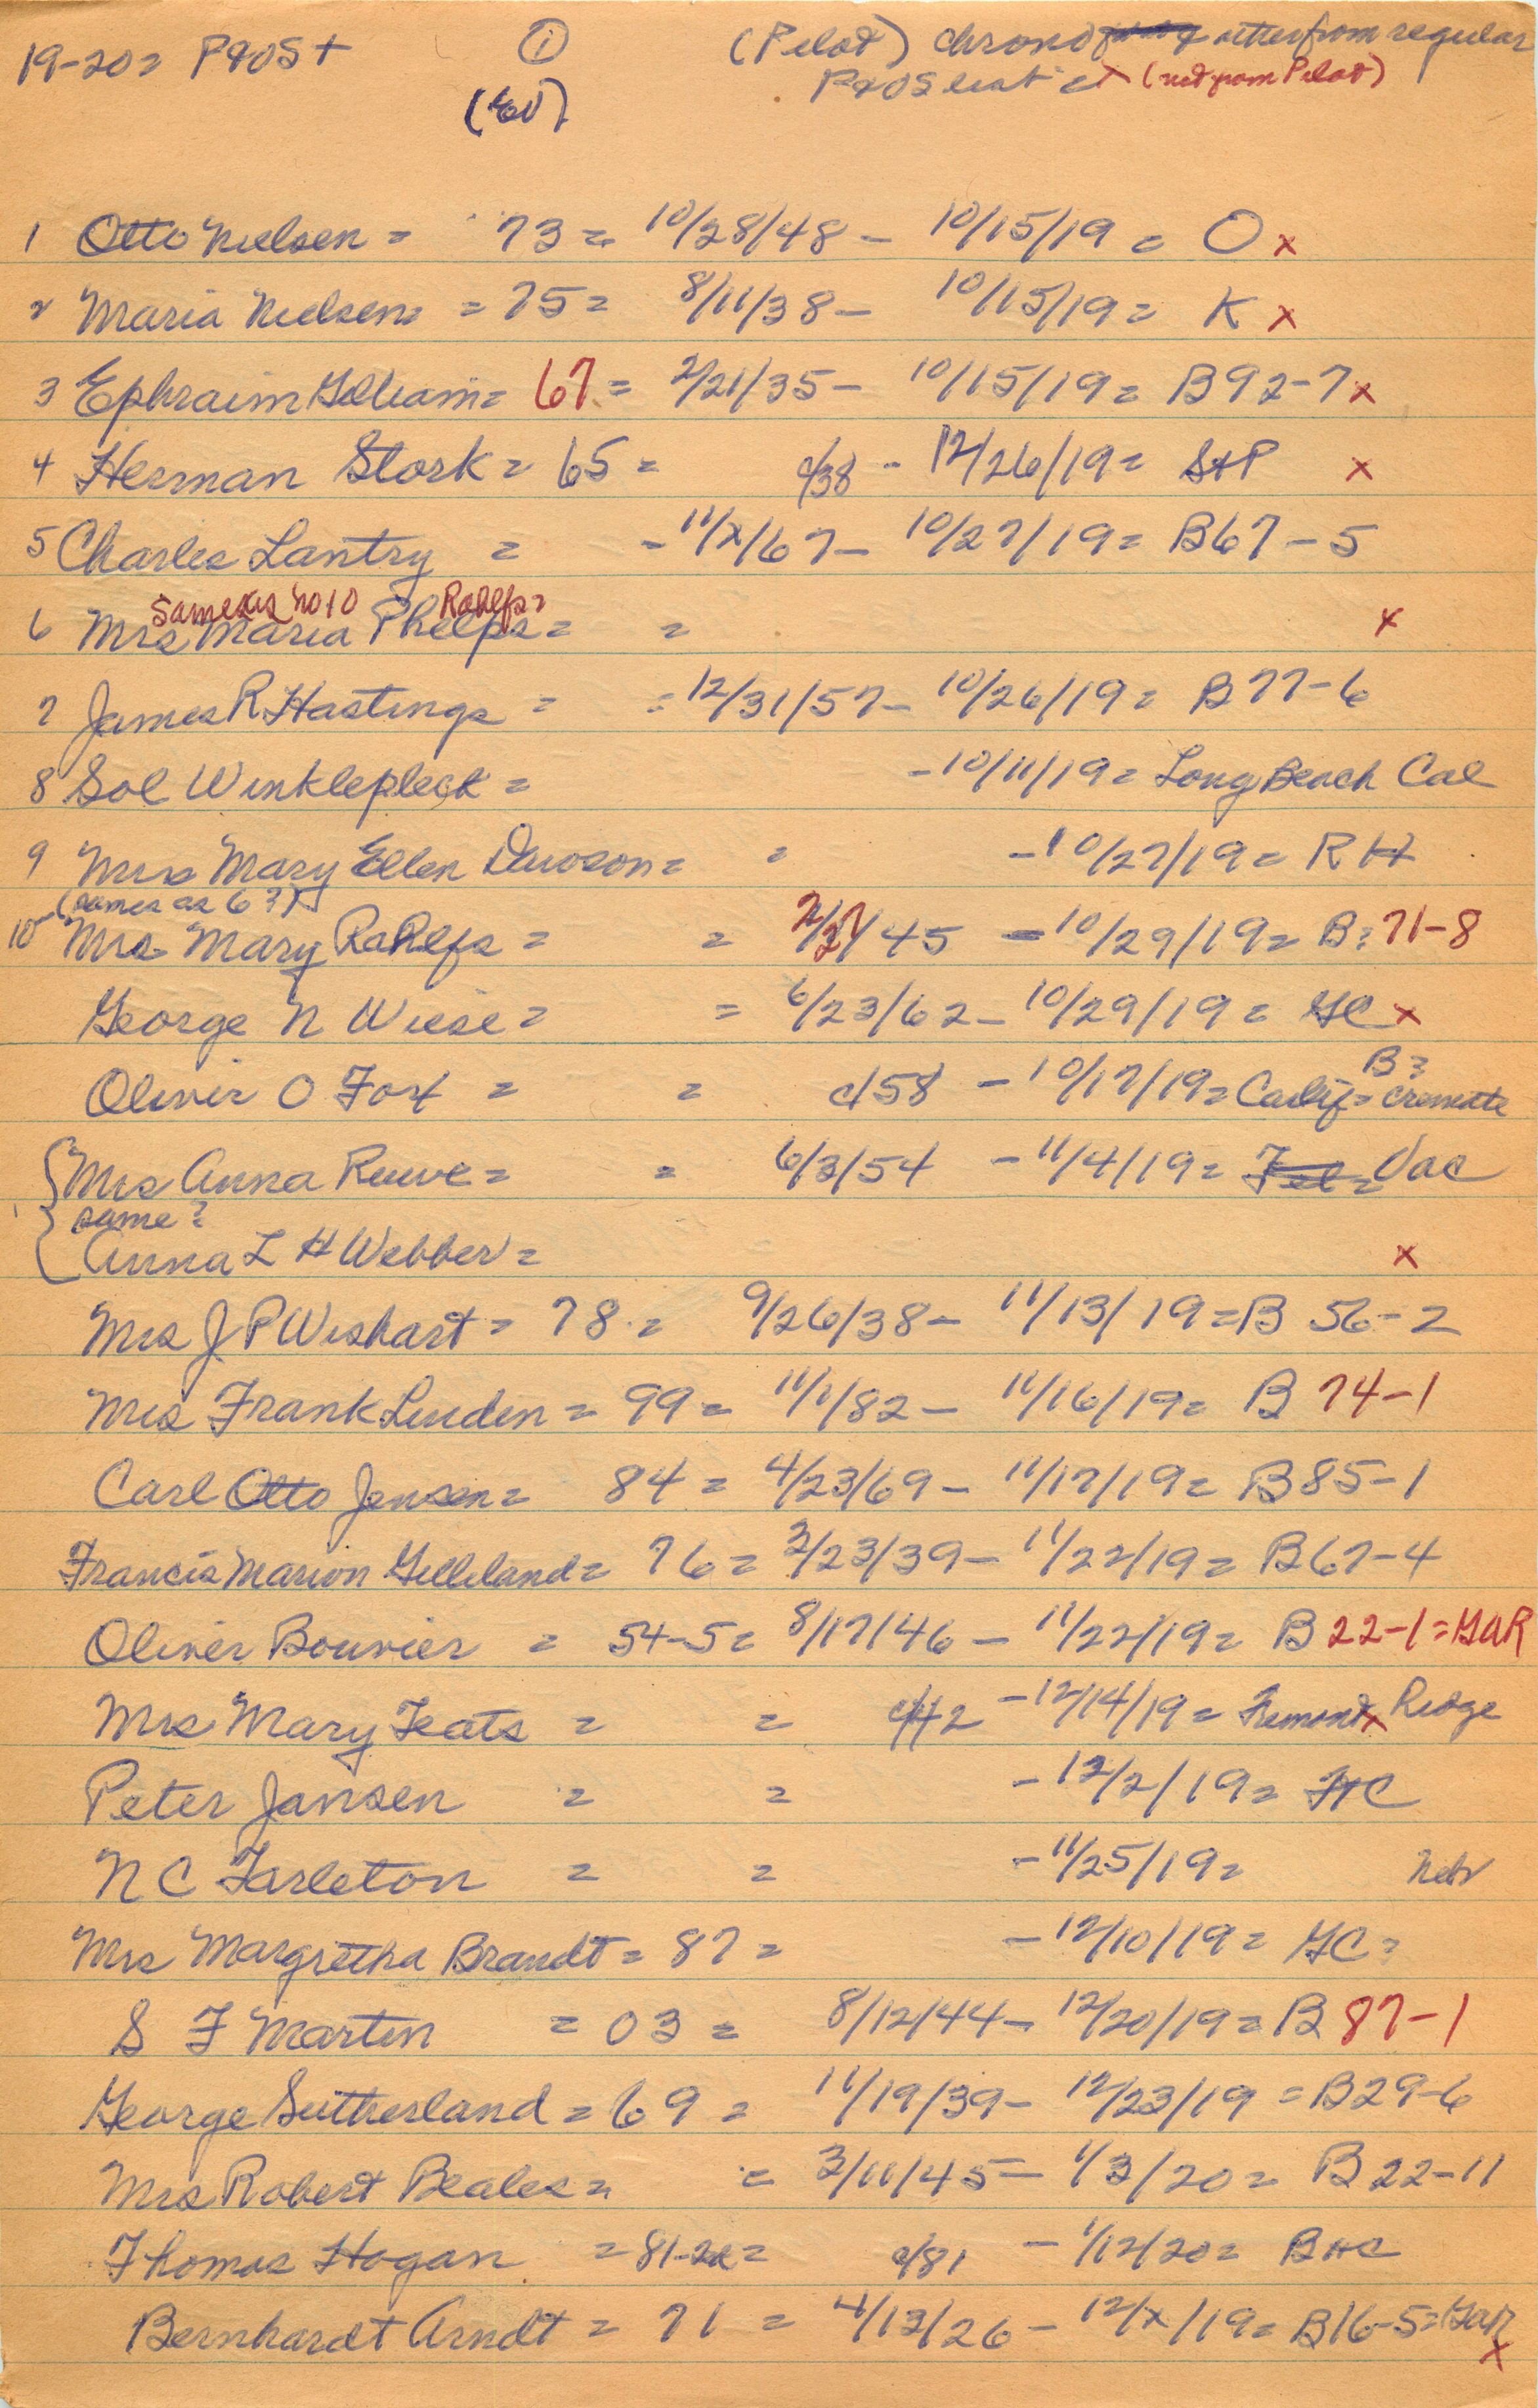 19-20= P&OS+ ① (Pilot) chrono after from regular
(EV) P&OS list = x (not from Pilot)
1 Otto Nielsen = 73 = 10/28/48 - 10/15/19 = O x
2 Maria Nielsen = = 75 = 8/11/38 - 10/15/19 = K x
3 Ephraim Gilliam = 67 = 2/21/35 - 10/15/19 = B92-7 x
4 Herman Stork = 65 = c/38 - 12/26/19 = StP x
5 Charles Lantry = - 11/x/67 - 10/27/19 = B67-5
same as no 10 Rahlfs=
6 Mrs Maria Phelps = = x
7 James R Hastings = = 12/31/57 - 10/26/19 = B77-6
8 Sol Winklepleck = - 10/11/19 = Long Beach Cal
9 Mrs Mary Ellen Dawson = = - 10/27/19 = RH
(same as 6?)
10 Mrs Mary Rahlfs = = 2/27/45 - 10/29/19 = B= 71-8
George N Wiese = = 6/23/62 - 10/29/19 = GC x
B?
Oliver O Fox = = c/58 - 10/17/19 = Calif = cremate
Mrs Anna Reeve = = 6/3/54 - 11/4/19 = Tel = Vac
same?
Anna L H Webber = x
Mrs J P Wishart = 78 = 9/26/38 - 11/13/19 = B 56-2
Mrs Frank Linden = 99 = 11/1/82 - 11/16/19 = B 74-1
Carl Otto Jensen = 84 = 4/23/69 - 11/17/19 = B85-1
Francis Marion Gilleland = 76 = 3/23/39 - 11/22/19 = B67-4
Oliver Bouvier = 54-5 = 8/17/46 - 11/22/19 = B 22-1 = GAR
Mrs Mary Teats = = c/42 - 12/14/19 = Fremont x Ridge
Peter Jansen = = - 12/2/19 = HC
N C Tarleton = = - 11/25/19 = Nebr
Mrs Margretha Brandt = 87 = - 12/10/19 = GC =
S F Martin = 03 = 8/12/44 - 12/20/19 = B 87-1
George Sutherland = 69 = 11/19/39 - 12/23/19 = B29-6
Mrs Robert Beales = = 3/11/45 - 1/3/20 = B 22-11
Thomas Hogan = 81-2c = c/81 - 1/12/20 = BHC
Bernhardt Arndt = 71 = 4/13/26 - 12/x/19 = B16-5 = GAR
x